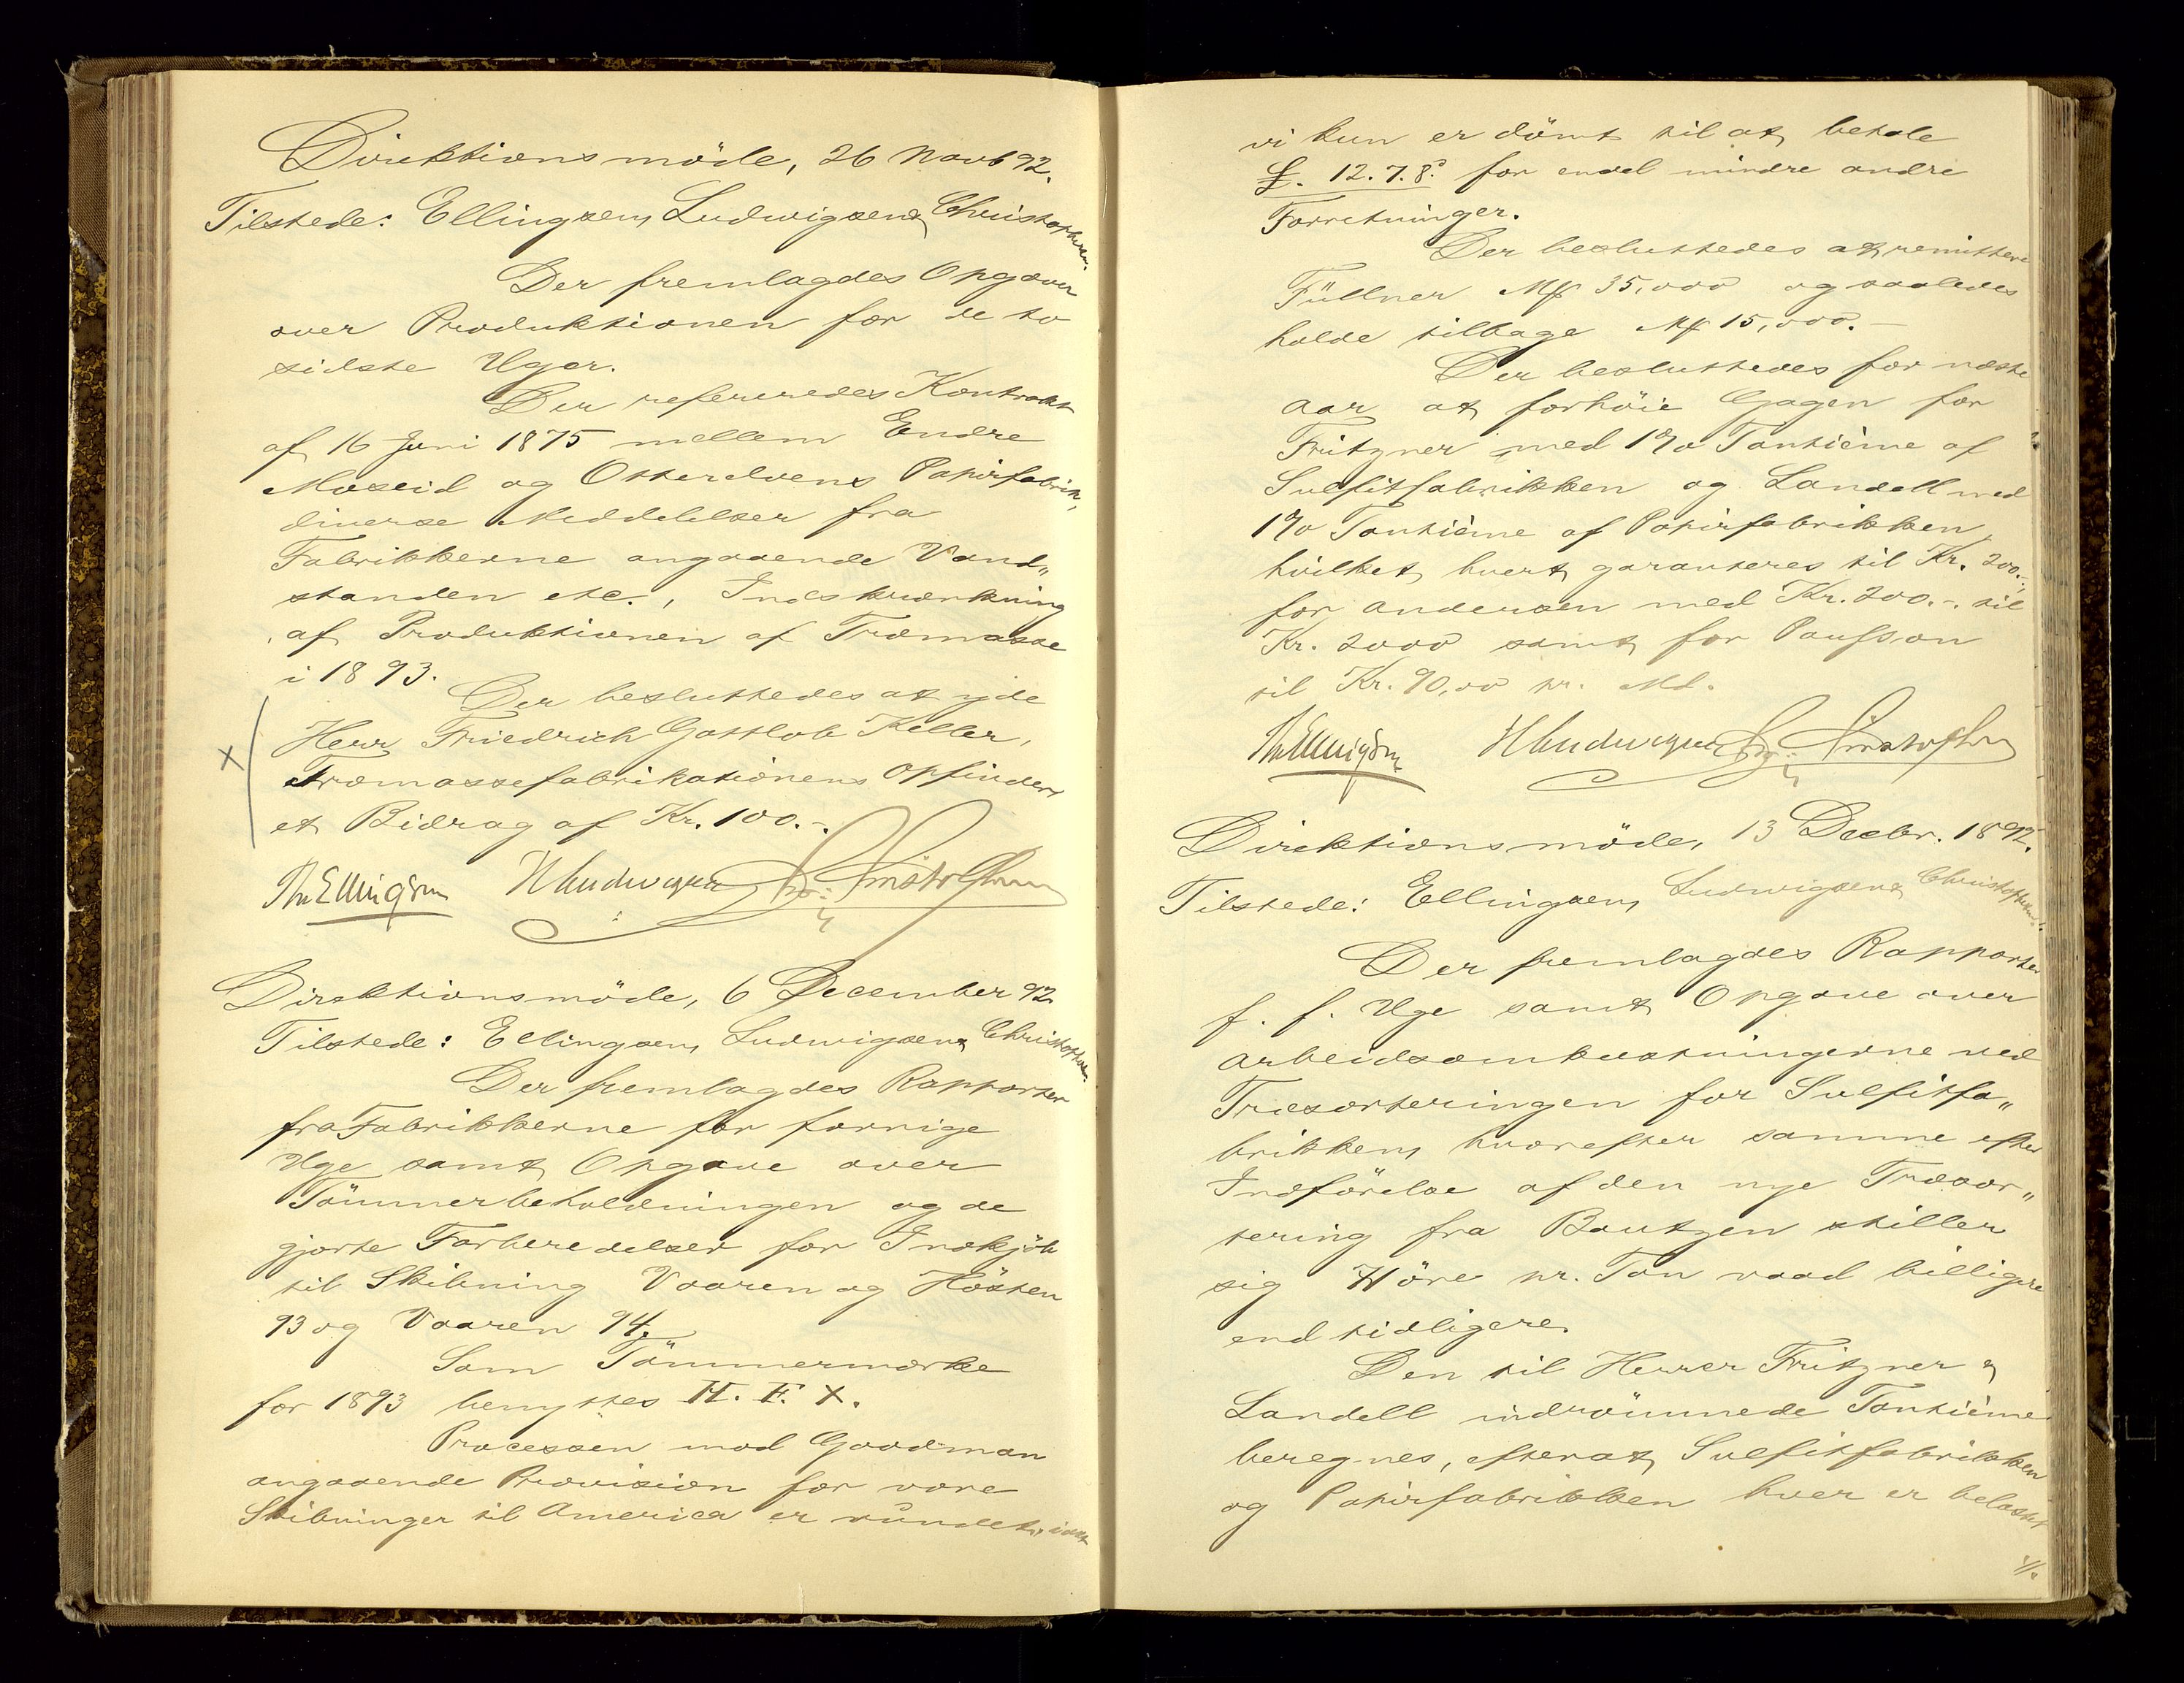 Direktionsmöde, 26 Novb 92.
Tilstede: Ellingsen, Ludwigsen & Christophersen.
Der fremlagdes Opgaver
over Produktionen for de to
sidste Uger.
Der refereredes Kontrakt
af 16 Juni 1875 mellem Endre
Moseid og Otterelvens Papirfabrik,
diverse Meddelelser fra
Fabrikkerne angaaende Vand„
standen etc., Indskrænkning
af Produktionen af Træmasse
i 1893.
Der besluttedes at yde
Herr Friedrich Gottlob Keller,
Træmassefabrikationens Opfinder,
et Bidrag af Kr. 100.-.
Th Ellingsen H Ludwigsen Chr: Christophersen
Direktionsmöde, 6 December 92.
Tilstede: Ellingsen, Ludwigsen & Christophersen.
Der fremlagdes Rapporter
fra Fabrikkerne for forrige
Uge samt Opgave over
Tömmerbeholdningen og de
gjorte Forberedelser for Indkjöb
til Skibning Vaaren og Hösten
93 og Vaaren 94.
Som Tömmermærke
for 1893 benyttes H. F. X.
Processen mod Goodman
angaaende Provision for vore
Skibninger til America er vundet, idet
vi kun er dömt til at betale
£. 12.7.8. for endel mindre andre
Forretninger.
Der besluttedes at remittere
Füllner Mk 35,000 og saaledes
holde tilbage Mk 15,000.-
Der besluttedes for næste
Aar at forhöie Gagen for
Fritzner med 1% Tantième af
Sulfitfabrikken og Landell med
1% Tantième af Papirfabrikken,
hvilket hvert garanteres til Kr. 200.-,
for Andersen med Kr. 200.-. til
Kr. 2000 samt for Paulsson
til Kr. 90,00 pr. Md.
Th Ellingsen H Ludwigsen Chr: Christophersen
Direktionsmöde, 13 Decbr. 1892.
Tilstede: Ellingsen, Ludwigsen & Christophersen.
Der fremlagdes Rapporter
f. f. Uge samt Opgave over
Arbeidsomkostningerne ved
Træsorteringen for Sulfitfa„
brikken, hvorefter samme efter
Indförelse af den nye Træsor„
tering fra Bautzen stiller
sig Höre pr. Ton vaad billigere
end tidligere.
Den til Herrer Fritzner &
Landell indrömmede Tantième
beregnes, efterat Sulfitfabrikken
og Papirfabrikken hver er belastet